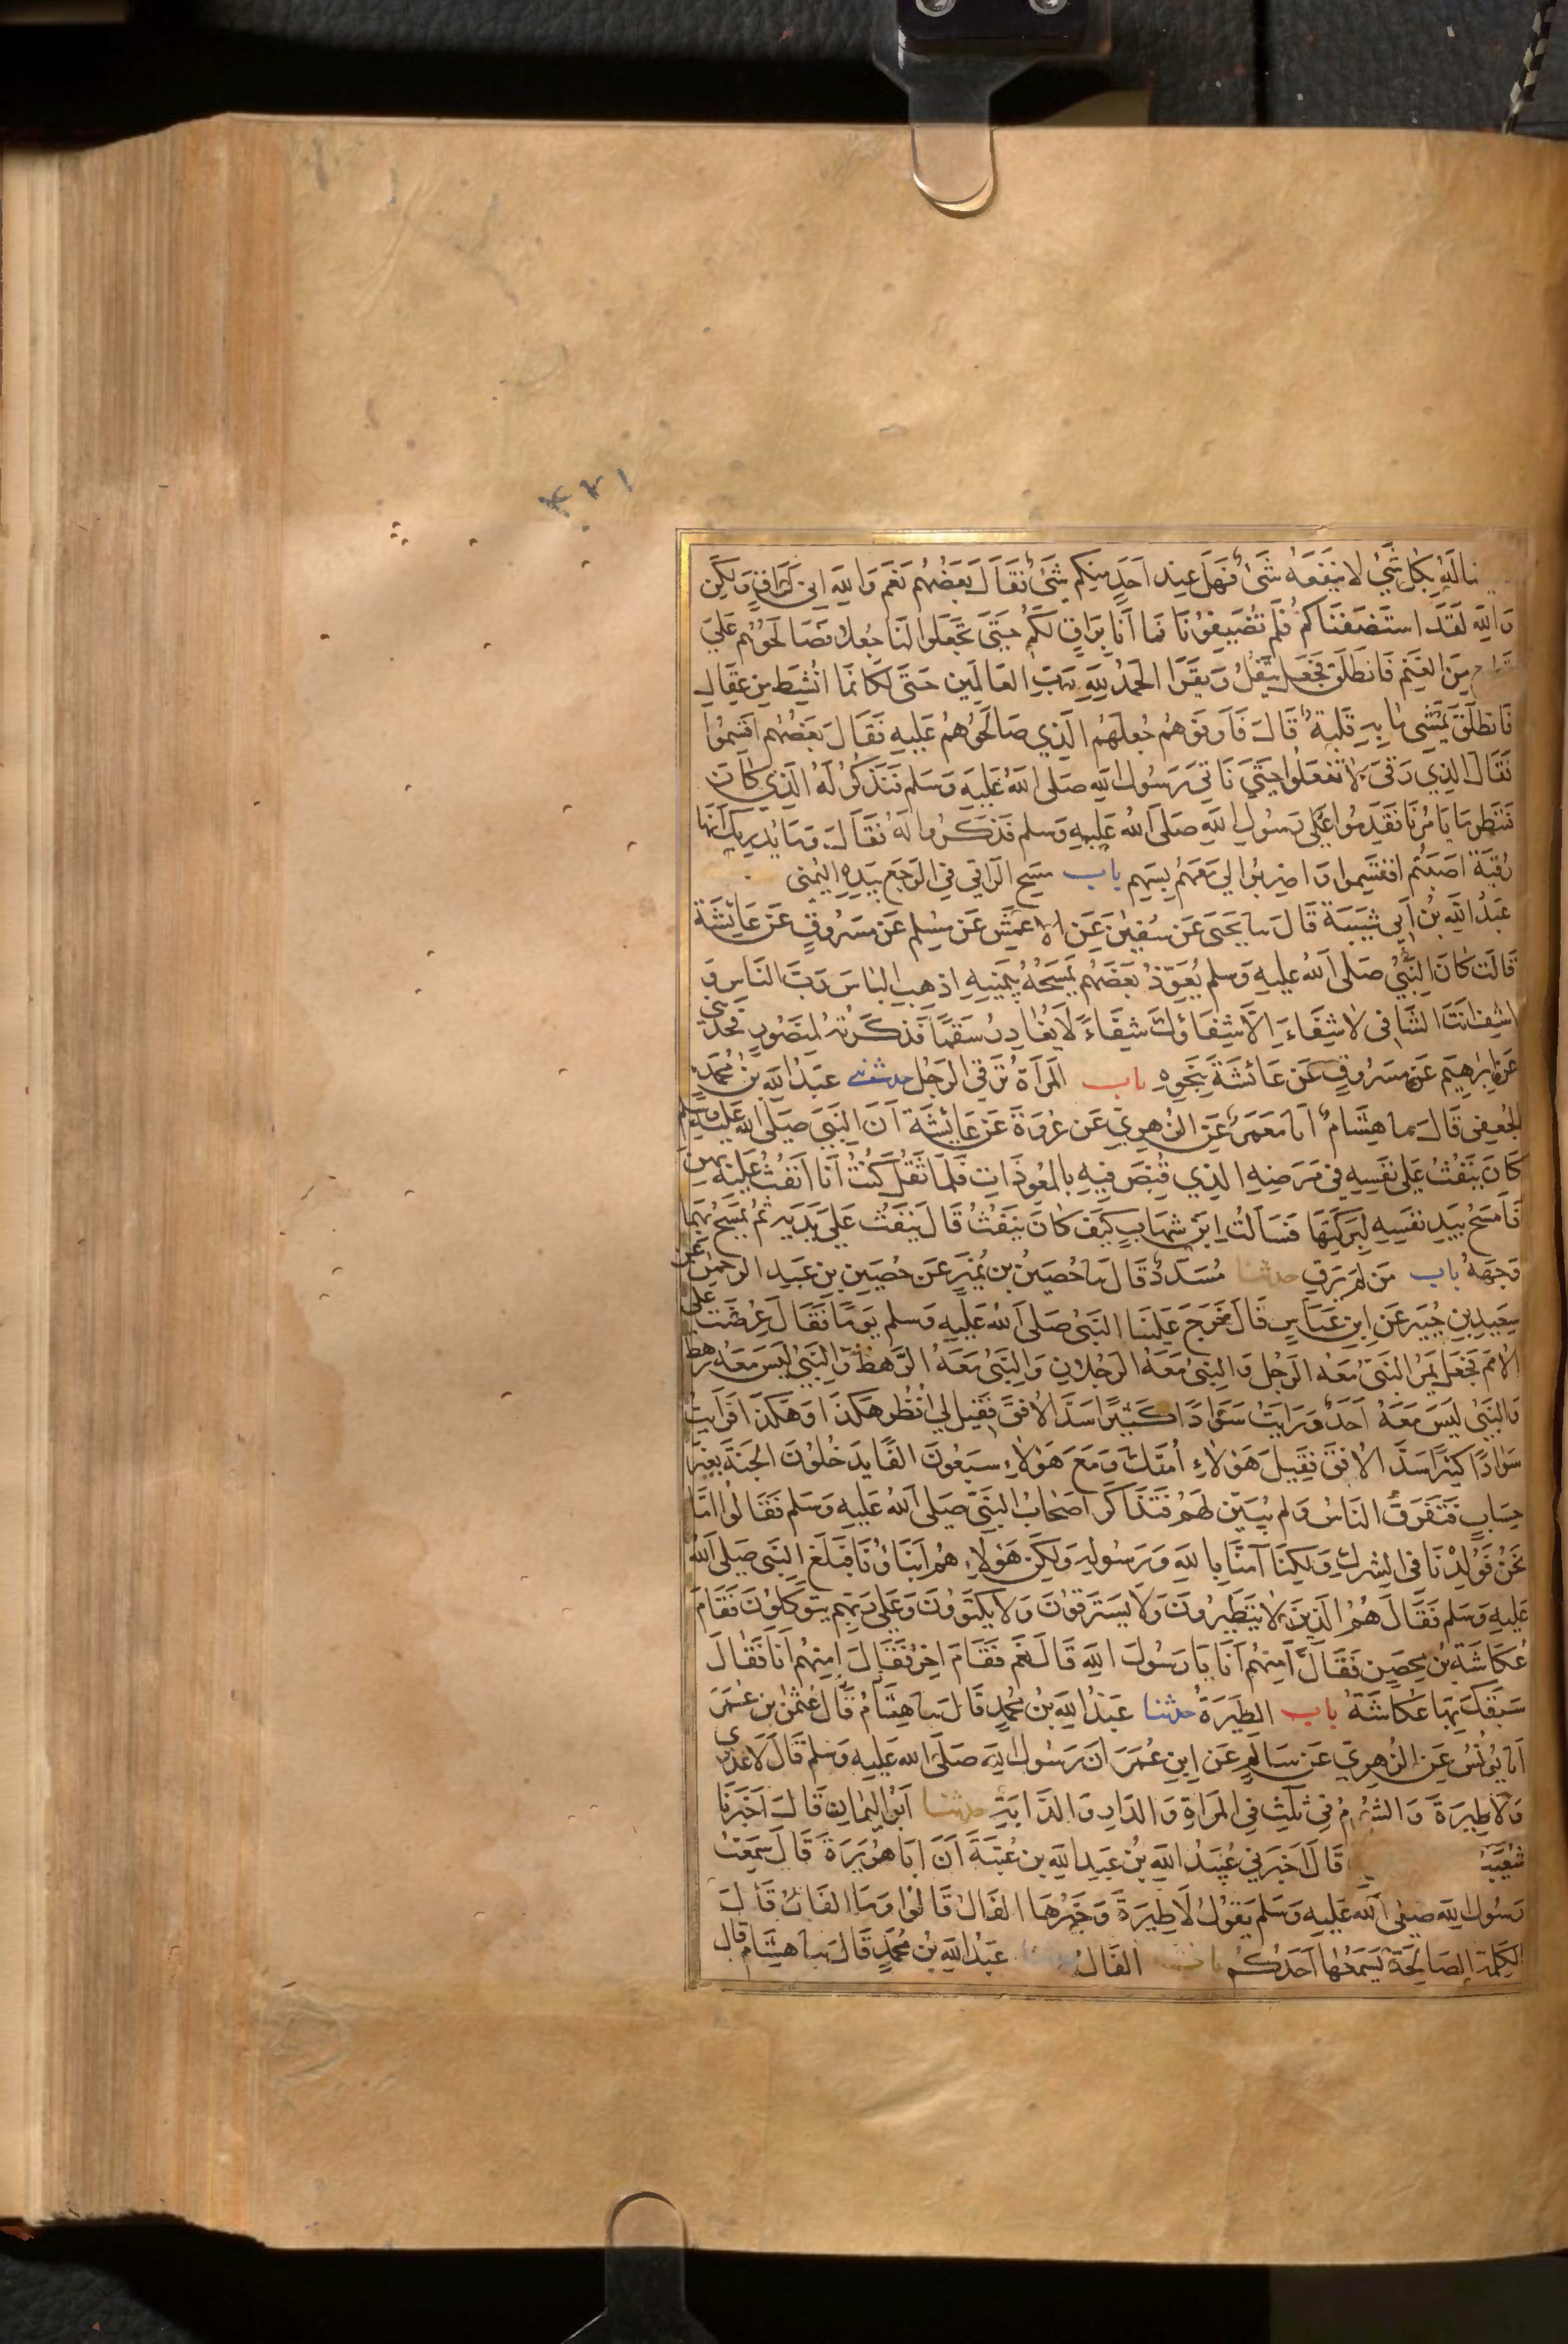 ٣٢١
له بكل شيء لا ينفعه شيء فهل عند احد منكم شيء فقال بعضهم نعم والله اني لراق ولكن
والله لقد استضفناكم فلم تضيفونا فما انا براق لكم حتى تجعلوا لنا جعلا فصالحوهم علي
من الغنم فانطلق فجعل يتفل ويقرا الحمد لله رب العالمين حتى لكانما انشط من عقال
فانطلق يمشي ما به قلبة قال فاوفوهم جعلهم الذي صالحوهم عليه فقال بعضهم اقسموا
فقال الذي رقى لا تفعلوا حتي ناتي رسول الله صلى الله عليه وسلم فنذكر له الذي كان
فننظر ما يامرنا فقدموا على رسول الله صلى الله عليه وسلم فذكروا له فقال وما يدريك انها
رقية اصبتم اقتسموا واضربوا لي معهم بسهم باب مسح الراقي في الوجع بيده اليمنى
عبد الله بن ابي شيبة قال سا يحيى عن سفين عن الاعمش عن مسلم عن مسروق عن عائشة
قالت كان النبي صلى الله عليه وسلم يعوذ بعضهم يمسحه بيمينه اذهب الباس رب الناس و
اشف انت الشافي لا شفاء الا شفاؤك شفاء لا يغادر سقما فذكرته لمنصور فحدثني
عن ابرهيم عن مسروق عن عائشة بنحوه باب المراة ترقي الرجل حدثني عبد الله بن محمد
الجعفي قال سا هشام انا معمر عن الزهري عن عروة عن عايشة ان النبي صلى الله عليه وسلم
كان ينفث على نفسه في مرضه الذي قبض فيه بالمعوذات فلما ثقل كنت انا انفث عليه بهن
فامسح بيد نفسه لبركتها فسالت ابن شهاب كيف كان ينفث قال ينفث علي يديه ثم يمسح بهما
وجهه باب من لم يرق حدثنا مسدد قال سا حصين بن نمير عن حصين بن عبد الرحمن عن
سعيد بن جبير عن ابن عباس قال خرج علينا النبي صلى الله عليه وسلم يوما فقال عرضت علي
الامم فجعل يمر النبي معه الرجل والنبي معه الرجلان والنبي معه الرهط والنبي ليس معه رهط
والنبي ليس معه احد ورايت سوادا كثيرا سد الافق فقيل لي انظر هكذا وهكذا فرايت
سوادا كثيرا سد الافق فقيل هولاء امتك ومع هولاء سبعون الفا يدخلون الجنة بغير
حساب فتفرق الناس ولم يبين لهم فتذاكر اصحاب النبي صلى الله عليه وسلم فقالوا اما
نحن فولدنا في الشرك ولكنا آمنا بالله ورسوله ولكن هولاء هم ابناؤنا فبلغ النبي صلى الله
عليه وسلم فقال هم الذين لا يتطيرون ولا يسترقون ولا يكتوون وعلى ربهم يتوكلون فقام
عكاشة بن محصن فقال امنهم انا يا رسول الله قال نعم فقام اخر فقال امنهم انا فقال
سبقك بها عكاشة باب الطيرة حدثنا عبد الله بن محمد قال سا هشام قال عثمن بن عمر
انا يونس عن الزهري عن سالم عن ابن عمر ان رسول الله صلى الله عليه وسلم قال لا عدوى
ولا طيرة والشوم في ثلث في المراة والدار والدابة حدثنا ابو اليمان قال اخبرنا
شعيب قال اخبرني عبيد الله بن عبد الله بن عتبة ان ابا هريرة قال سمعت
رسول الله صلى الله عليه وسلم يقول لا طيرة وخيرها الفال قالوا وما الفال قال
الكلمة الصالحة يسمعها احدكم باب الفال عبد الله بن محمد قال سا هشام قال